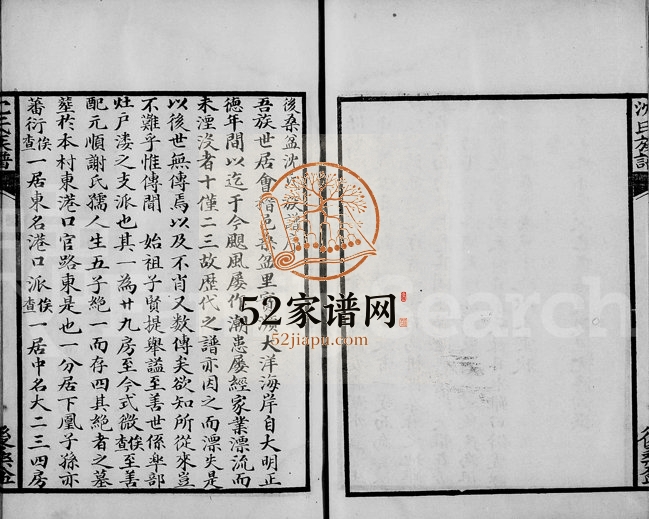 沈氏族譜
後桑盆
後桑盆沈氏族譜
吾族世居會稽邑桑盆里實濱大洋海岸自大明正
德年間以迄于今颶風屢作潮患屢經家業漂流而
未湮沒者十僅二三故歷代之譜亦因之而漂失是
以後世無傳焉以及不肖又數傳矣欲知所從來豈
不難乎惟傳聞 始祖子賢提舉謚至善世係皋部
灶戶漊之支派也其一為廿九房至今式微俟查至善
配元順謝氏孺人生五子絕一而存四其絕者之墓
葬於本村東港口官路東是也一分居下凰子孫亦
蕃衍俟查一居東名港口派俟查一居中名大二三四房
52家谱网
52jiapu.com